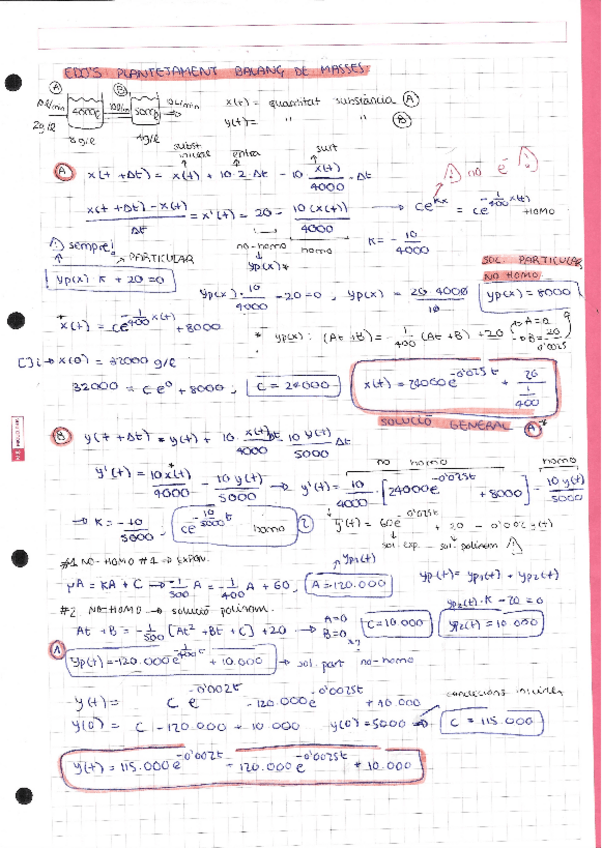 EDO'S PLANTEJAMENT BALANÇ DE MASSES:
A B
10 L/min 4000 l 10 L/min 5000 l 10 L/min
2g/l 8g/l 1g/l
x(t) = quantitat substància A
y(t) = " " B
subst inicial entra surt
A x(t+Δt) = x(t) + 10·2·Δt - 10 x(t)/4000 ·Δt
x(t+Δt) - x(t)/Δt = x'(t) = 20 - 10(x(t))/4000 → ce^kx = ce^-1/400 x(t) HOMO
no-homo homo K = -10/4000
sempre! PARTICULAR yp(x)*
yp(x) K + 20 = 0
SOL. PARTICULAR
NO HOMO
yp(x)·10/4000 - 20 = 0, yp(x) = 20 4000/10 yp(x) = 8000
x(t) = ce^-1/400 x(t) + 8000
* yp(x): (At+B) = -1/400 (At+B) + 20 → A=0 B = 20/0'0025
[ ]i → x(0) = 32000 g/l
32000 = ce^0 + 8000, C = 24000
x(t) = 24000e^-0'025t + 20/1/400
SOLUCIÓ GENERAL A
B y(t+Δt) = y(t) + 10 x(t)/4000 Δt - 10 y(t)/5000 Δt
no homo homo
y'(t) = 10x(t)/4000 - 10y(t)/5000 → y'(t) = 10/4000 · [24000e^-0'025t + 8000] - 10y(t)/5000
→ K = -10/5000, ce^-10/5000 t homo 2 y'(t) = 60e^-0'0025t + 20 - 0'002y(t)
sol. exp. sol. polinom
#1 NO-HOMO #1 → EXPON. yp1(t)
μA = KA + C → -1/500 A = -1/400 A + 60, A = 120.000
yp(t) = yp1(t) + yp2(t)
yp2(t)·K - 20 = 0
#2 NO-HOMO → solució polinom.
At + B = -1/500 [At² + Bt + C] + 20 → A=0 B=0 C = 10 000 yp2(t) = 10 000
1 yp(t) = -120.000e^-1/400 t + 10.000 → sol. part no-homo
y(t) = C e^-0'002t -120.000e^-0'0025t + 10.000
condicions inicials
y(0) = C - 120.000 + 10 000 y(0) = 5000 → C = 115.000
y(t) = 115.000e^-0'002t - 120.000e^-0'0025t + 10.000